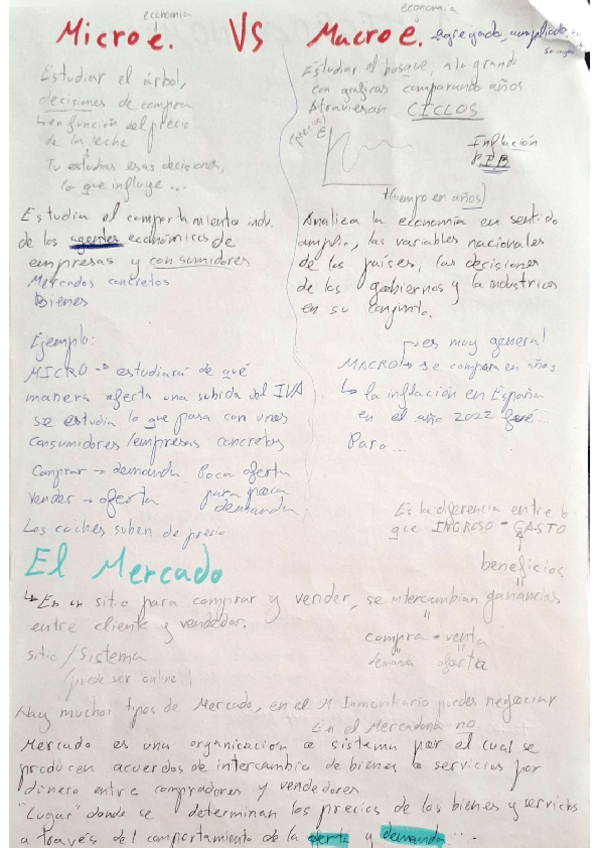 economía
Microe. VS
Estudiar el árbol,
decisiones de compra
↳ en función del precio
de la leche
Tu estudias esas decisiones,
lo que influye ...
Estudia el comportamiento indv.
de los agentes económicos de
empresas y consumidores
Mercados concretos
Bienes
Ejemplo:
MICRO → estudiará de qué
manera afecta una subida del IVA
se estudia lo que pasa con unos
consumidores/empresas concretos
Comprar → demanda Poca oferta
Vender → oferta para poca
demanda
Los coches suben de precio
economía
Macroe. agregada, ampliado.
Estudiar el bosque, a lo grande
con graficas comparando años
Atraviesan CICLOS
(precios)
€
Inflación
PIB
tiempo en años)
Analiza la economía en sentido
amplio, las variables nacionales
de los países, las decisiones
de los gobiernos y la industrias
en su conjunto.
es muy general
MACRO → se compara en años
↳ la inflación en España
en el año 2022 fué...
Paro...
Es la diferencia entre lo
que INGRESO - GASTO
beneficios
El Mercado
↳ Es un sitio para comprar y vender, se intercambian ganancias
entre cliente y vendedor.
compra - venta
sitio / Sistema
demanda oferta
(puede ser online)
Hay muchos tipos de Mercado, en el M Inmoviliario puedes negociar
En el Mercadona no
Mercado es una organización o sistema por el cual se
producen acuerdos de intercambio de bienes o servicios por
dinero entre compradores y vendedores
"Lugar" donde se determinan los precios de los bienes y servicios
a través del comportamiento de la oferta y demanda ...